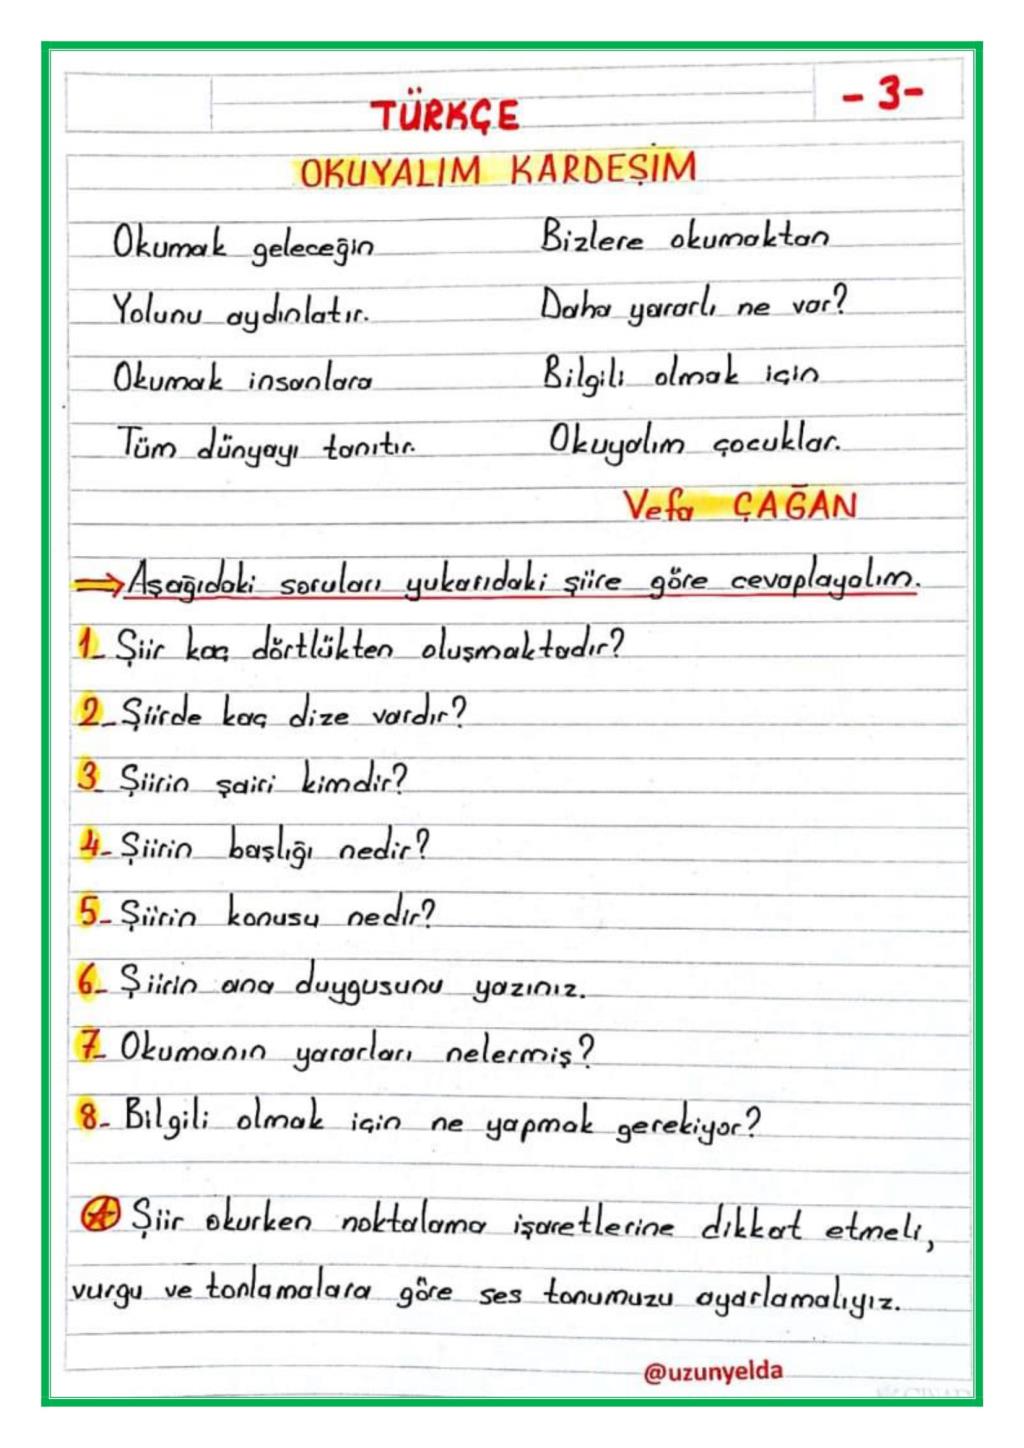 -3-
TÜRKÇE
OKUYALIM KARDEŞİM
Okumak geleceğin
Yolunu aydınlatır.
Okumak insanlara
Tüm dünyayı tanıtır.
Bizlere okumaktan
Daha yararlı ne var?
Bilgili olmak için
Okuyalım çocuklar.
Vefa ÇAĞAN
⇒ Aşağıdaki soruları yukarıdaki şiire göre cevaplayalım.
1- Şiir kaç dörtlükten oluşmaktadır?
2- Şiirde kaç dize vardır?
3- Şiirin şairi kimdir?
4- Şiirin başlığı nedir?
5- Şiirin konusu nedir?
6- Şiirin ana duygusunu yazınız.
7- Okumanın yararları nelermiş?
8- Bilgili olmak için ne yapmak gerekiyor?
Şiir okurken noktalama işaretlerine dikkat etmeli,
vurgu ve tonlamalara göre ses tonumuzu ayarlamalıyız.
@uzunyelda